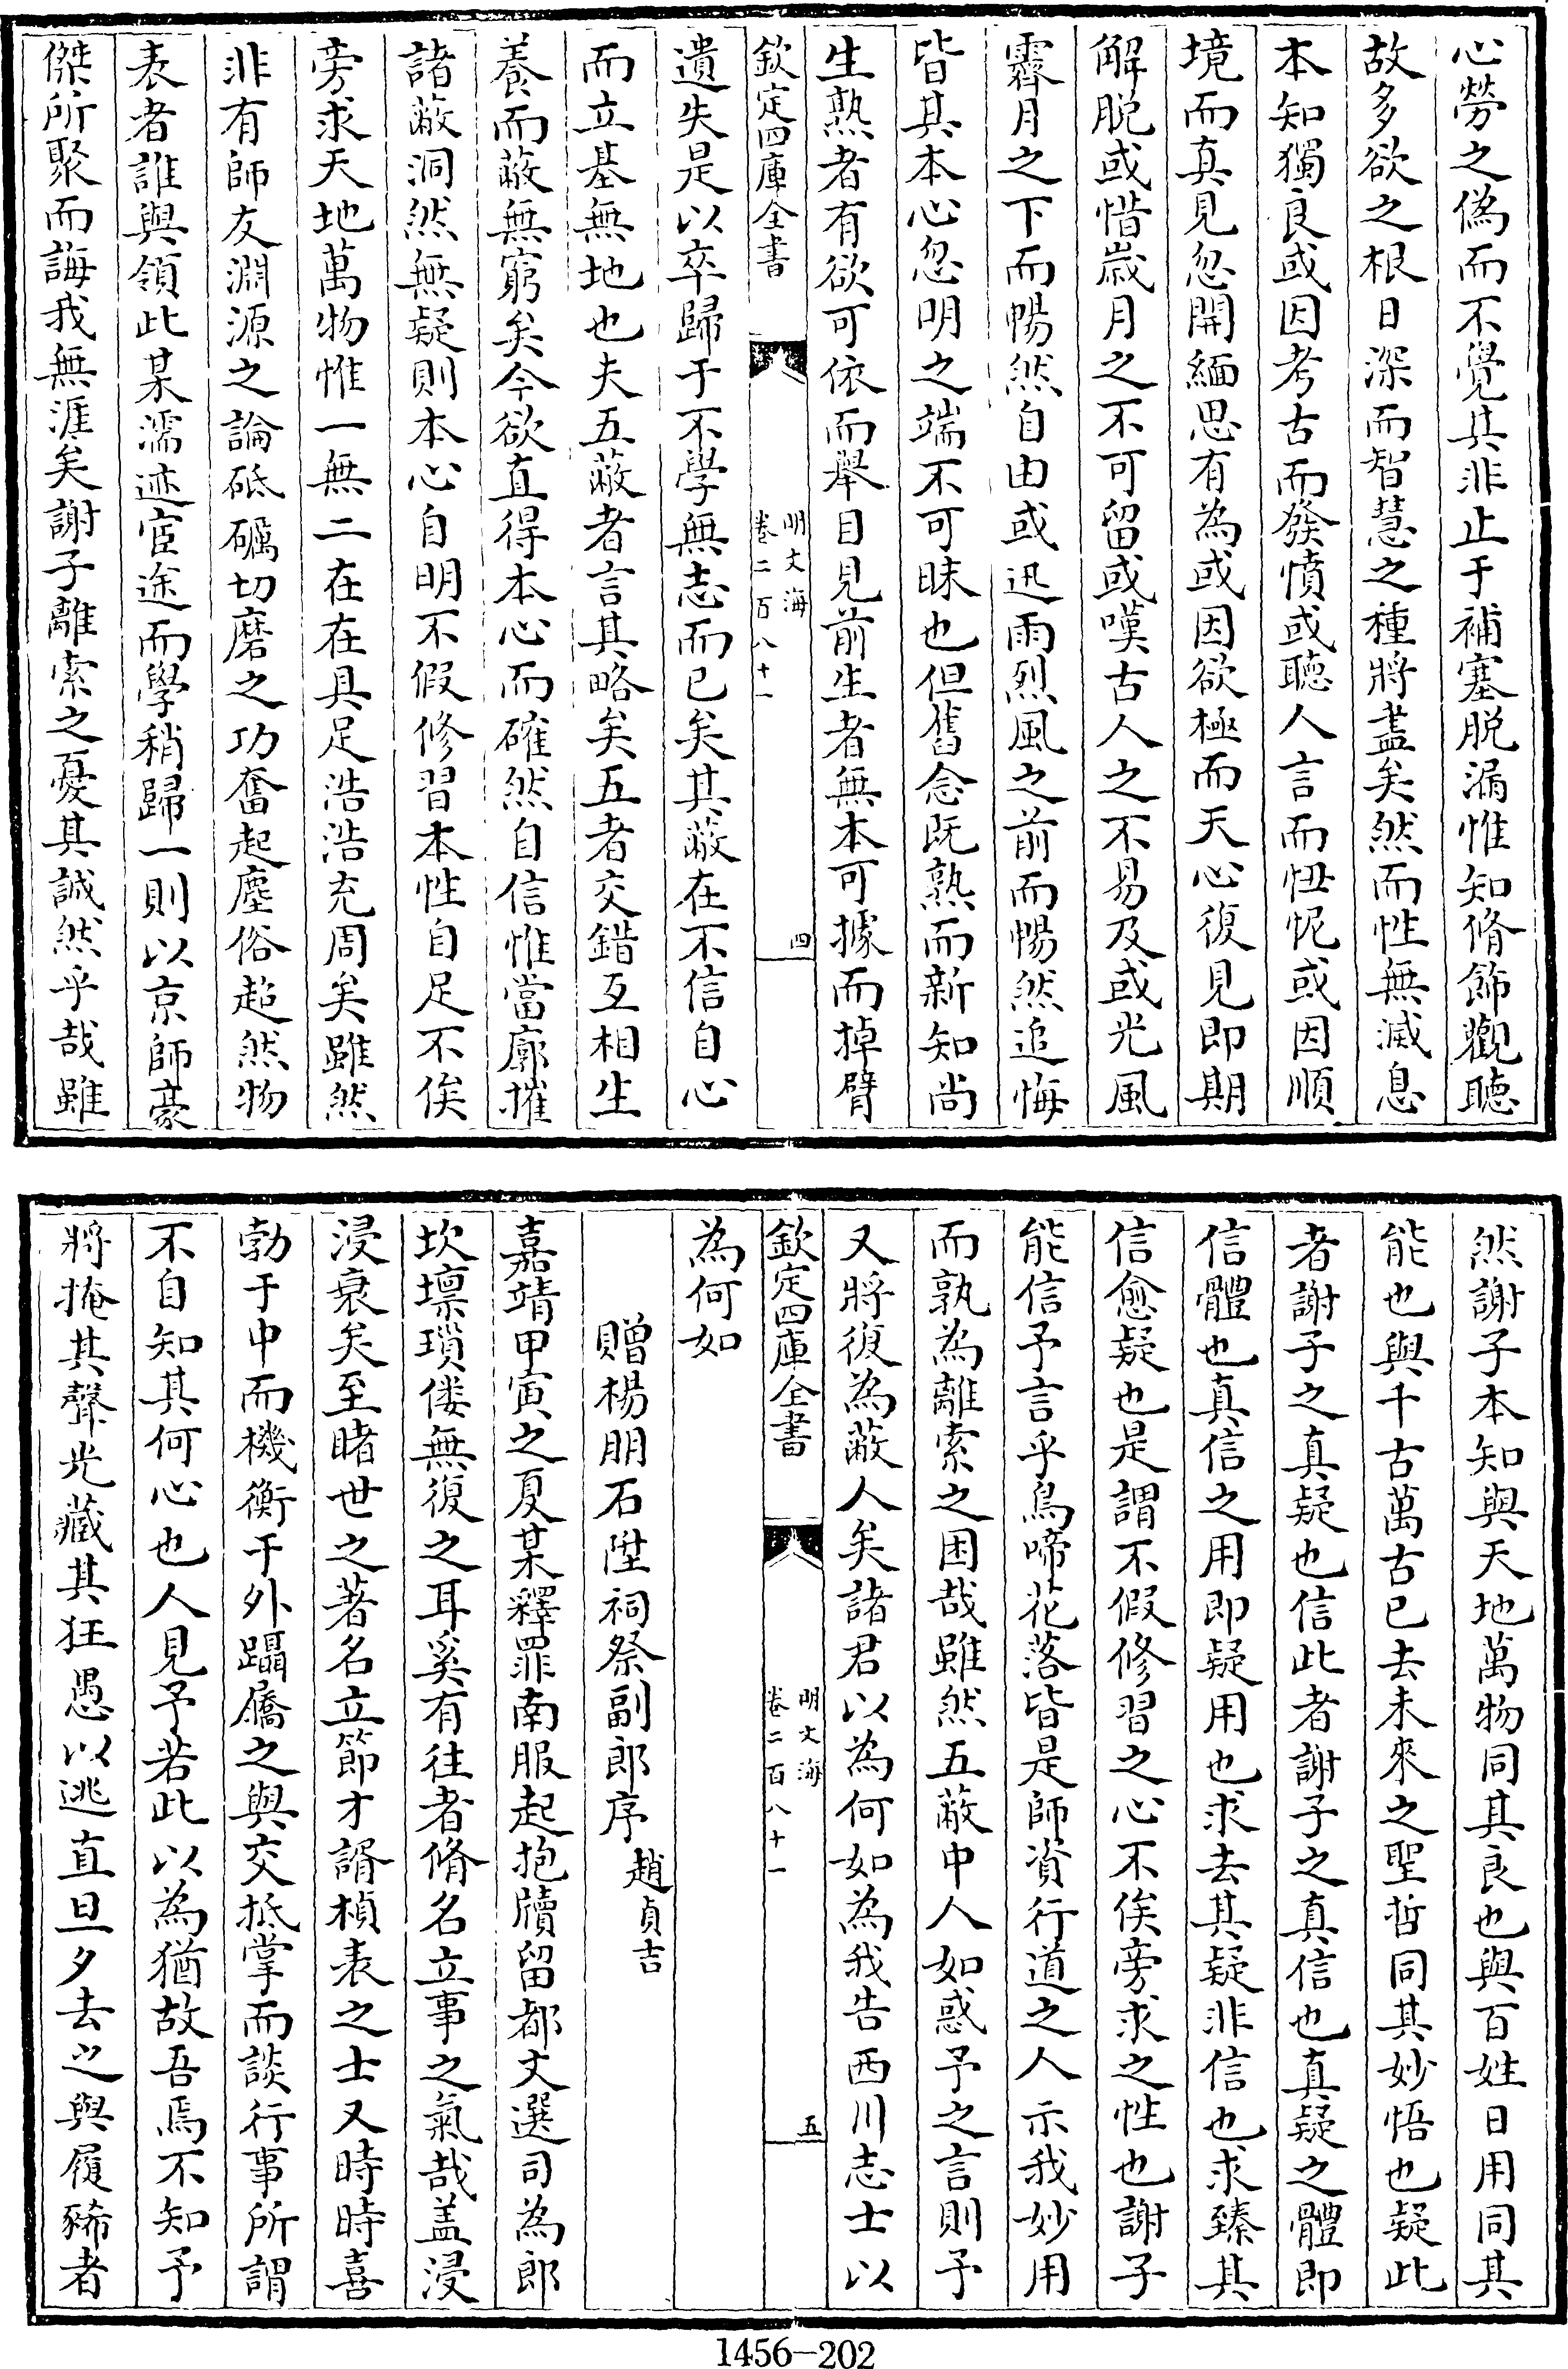 心勞之偽而不覺其非止于補塞脱漏惟知脩飾觀聽
故多欲之根日深而智慧之種將盡矣然而性無滅息
本知獨良或因考古而發憤或聽人言而忸怩或因順
境而真見忽開緬思有為或因欲極而天心復見即期
解脱或惜嵗月之不可留或嘆古人之不易及或光風
霽月之下而暢然自由或迅雨烈風之前而暢然追悔
皆其本心忽明之端不可昧也但舊念既熟而新知尚
生熟者有欲可依而舉目見前生者無本可據而掉臂
欽定四庫全書
明文海
卷二百八十一
四
遺失是以卒歸于不學無志而已矣其蔽在不信自心
而立基無地也夫五蔽者言其略矣五者交錯互相生
養而蔽無窮矣今欲直得本心而確然自信惟當廓摧
諸蔽洞然無疑則本心自明不假修習本性自足不俟
旁求天地萬物惟一無二在在具足浩浩充周矣雖然
非有師友淵源之論砥礪切磨之功奮起塵俗超然物
表者誰與領此某濡迹宦途而學稍歸一則以京師豪
傑所聚而誨我無涯矣謝子離索之憂其誠然乎哉雖
然謝子本知與天地萬物同其良也與百姓日用同其
能也與千古萬古已去未來之聖哲同其妙悟也疑此
者謝子之真疑也信此者謝子之真信也真疑之體即
信體也真信之用即疑用也求去其疑非信也求臻其
信愈疑也是謂不假修習之心不俟旁求之性也謝子
能信予言乎鳥啼花落皆是師資行道之人示我妙用
而孰為離索之困哉雖然五蔽中人如惑予之言則予
又將復為蔽人矣諸君以為何如為我告西川志士以
欽定四庫全書
明文海
卷二百八十一
五
為何如
贈楊朋石陞祠祭副郎序 趙貞吉
嘉靖甲寅之夏某釋罪南服起抱牘留都文選司為郎
坎壈瑣僂無復之耳奚有往者脩名立事之氣哉盖浸
浸衰矣至睹世之著名立節才諝楨表之士又時時喜
勃于中而機衡于外躡屩之與交抵掌而談行事所謂
不自知其何心也人見予若此以為猶故吾焉不知予
將掩其聲光藏其狂愚以逃直旦夕去之與履豨者
1456-202